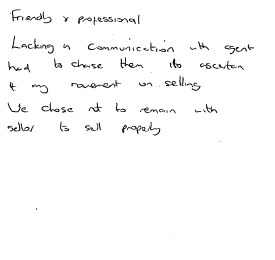 Friendly & professional
Lacking in communication with agent
had to chase them to ascertain
if any movement on selling
We chose not to remain with
seller to sell property